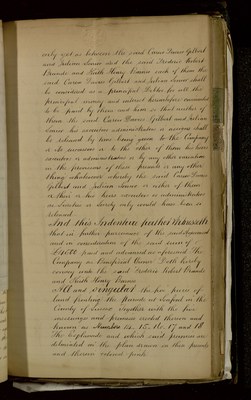 only and as between the said Carew Davies Gilbert
and Julian Simes and the said Frederic Robert
Brands and Keith Henry Davies each of them the
said Carew Davies Gilbert and Julian Simes shall
be considered as a principal Debtor for all the
principal money and interest hereinbefore covenanted
to be paid by them and him so that neither of
them the said Carew Davies Gilbert and Julian
Simes his executors administrators or assigns shall
be released by time being given to the Company
or its successors or to the other of them his heirs
executors or administrators or by any other variation
in the provisions of these presents or any other
thing whatsoever whereby the said Carew Davies
Gilbert and Julian Simes or either of them
or their or his heirs executors or administrators
as Sureties or Surety only would have been so
released
And this Indenture further Witnesseth
that in further pursuance of the said Agreement
and in consideration of the said sum of
£4000 paid and advanced as aforesaid The
Company as Beneficial Owner Doth hereby
convey unto the said Frederic Robert
and Keith Henry Davies
All and Singular the five pieces of
land fronting the Parade at Seaford in the
County of Sussex Together with the five
messuages and premises erected thereon and
known as Numbers 14. 15. 16. 17 and 18
The Esplanade and which said premises are
delineated in the plan drawn on these presents
and thereon colored pink